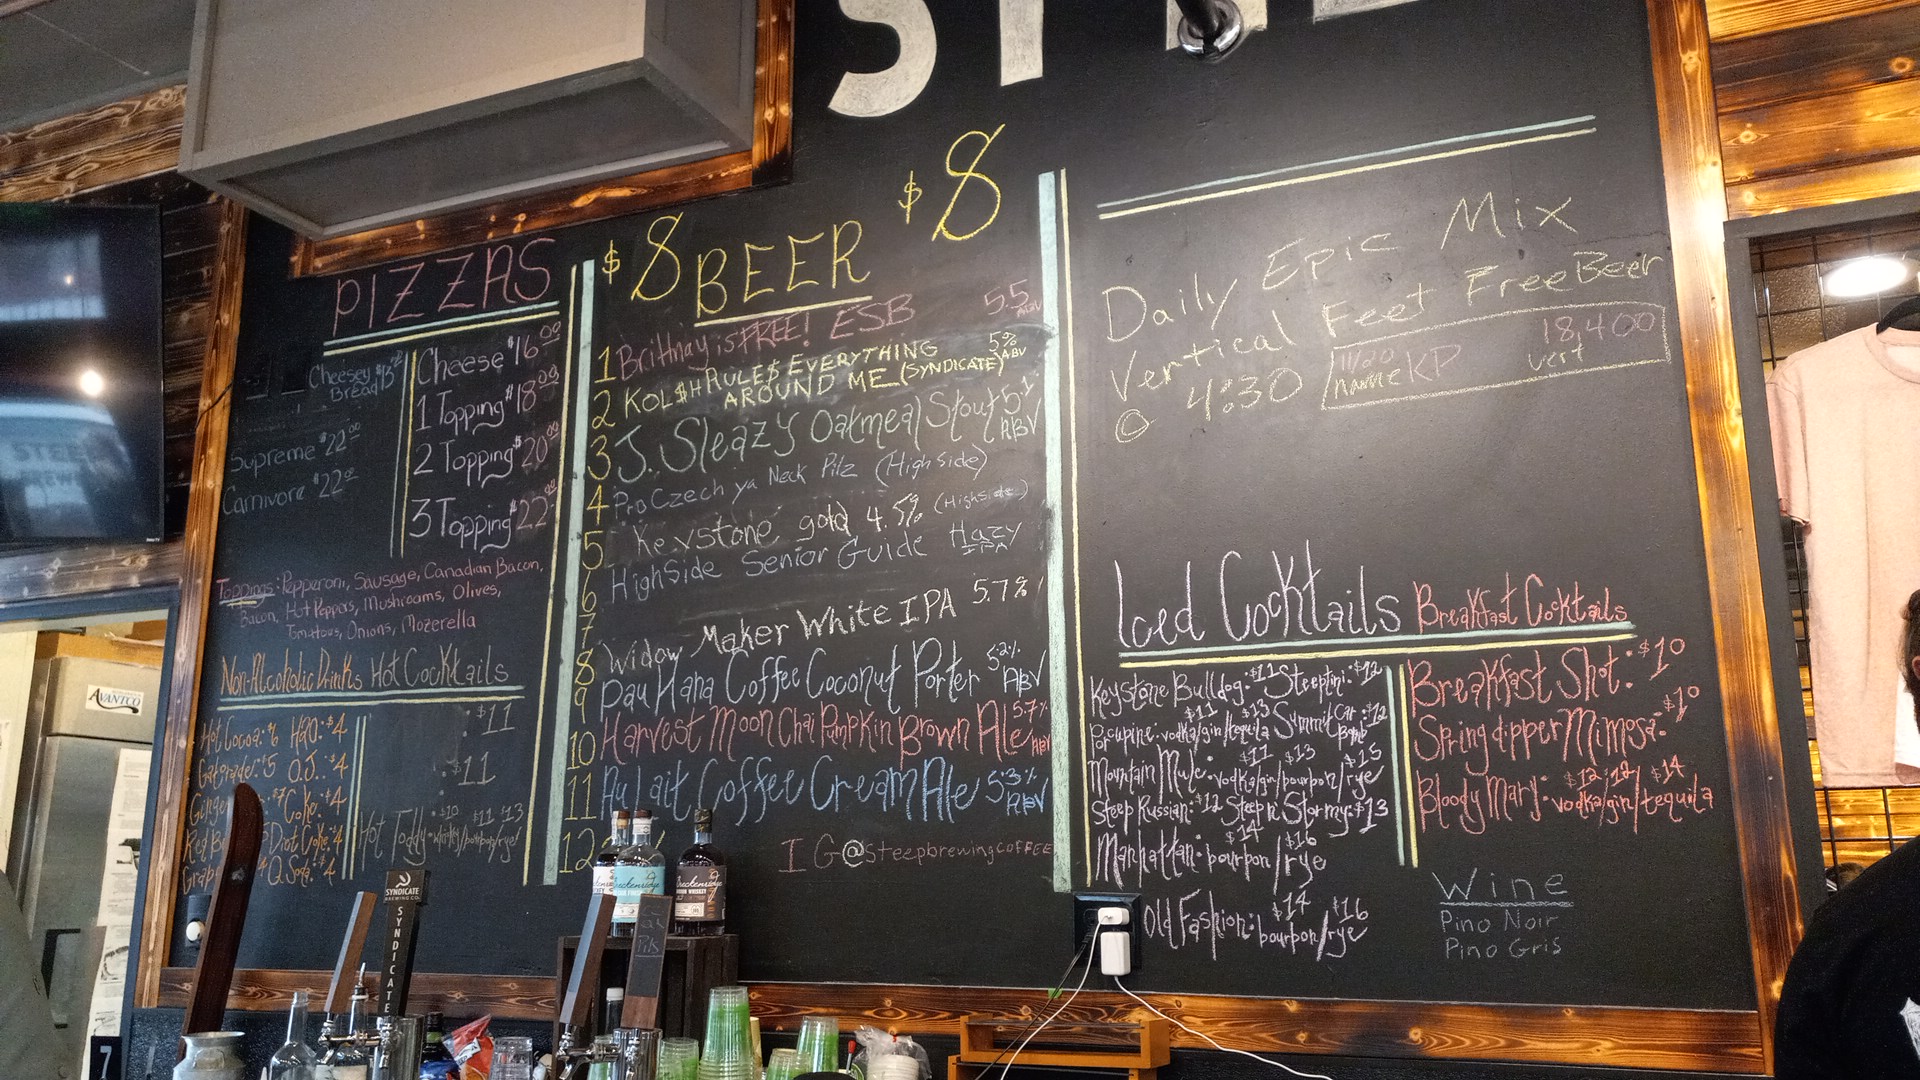 PIZZAS
Cheesey
Bread
Supreme $22.00
Carnivore $22.00
Cheese $16.00
1 Topping $18.00
2 Topping $20.00
3 Topping $22
Toppings: Pepperoni, Sausage, Canadian Bacon,
Bacon, Hot Peppers, Mushrooms, Olives,
Tomatous, Onions, Mozerella
Non-Alcoholic Drinks
Hot Cocoa: $6 H2O: $4
Gatorade: $5 O.J.: $4
Coke: $4
Diet Coke: $4
Q. Soda: $4
Hot Cocktails
: $11
: $11
Hot Toddy: whisky/bourbon/rye
$10 $11 $13
$8 BEER $8
1 Brittnay is FREE! ESB 5.5 ABV
2 KOL$H RULE$ EVERYTHING
AROUND ME (SYNDICATE) 5% ABV
3 J. Sleazy Oatmeal Stout 5.1 ABV
4 Pro Czech ya Neck Pilz (High Side)
5 Keystone gold 4.5% (Highside)
6 HighSide Senior Guide Hazy IPA
7
8 Widow Maker White IPA 5.7%
9 Pau Hana Coffee Coconut Porter 5.2% ABV
10 Harvest Moon Chai Pumpkin Brown Ale 5.7% ABV
11 Au Lait Coffee Cream Ale 5.3% ABV
12
IG@steepbrewingCOFFEE
Daily Epic Mix
Vertical Feet Free Beer
@ 4:30
11/20
name KP
18,400
vert
Iced Cocktails
Keystone Bulldog: $11 Steeptini: $12
$11 $13
Porcupine: vodka/gin/tequila Summit Car Bomb $12
$11 $13 $15
Mountain Mule: vodka/gin/bourbon/rye
Steep Russian: $12 Steep n' Stormy: $13
$14 $16
Manhattan: bourbon/rye
$14 $16
Old Fashion: bourbon/rye
Breakfast Cocktails
Breakfast Shot: $10
Spring dipper Mimosa: $10
$12 $12 $14
Bloody Mary: vodka/gin/tequila
Wine
Pino Noir
Pino Gris
AVANTCO
SYNDICATE
BREWING CO.
SYNDICATE
7